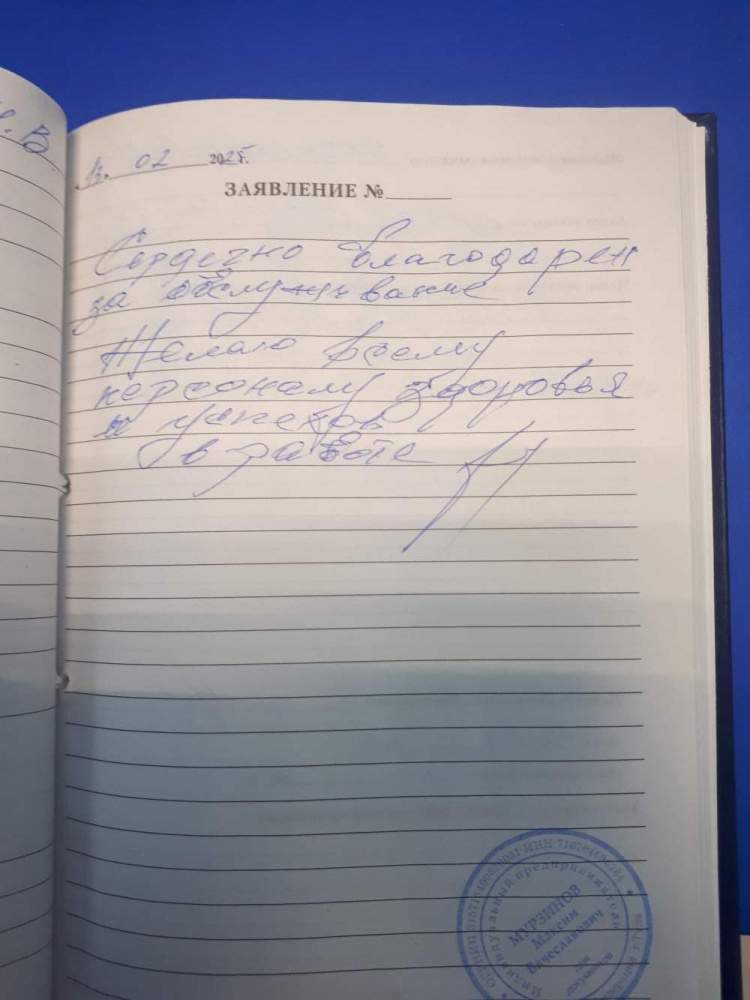 02 2025г.
ЗАЯВЛЕНИЕ №
Сердечно благодарен
за обслуживание
Желаю всему
персоналу здоровья
и успехов
в работе
Индивидуальный предприниматель
МУРЗИНОВ
Максим
Вячеславович
для
документов